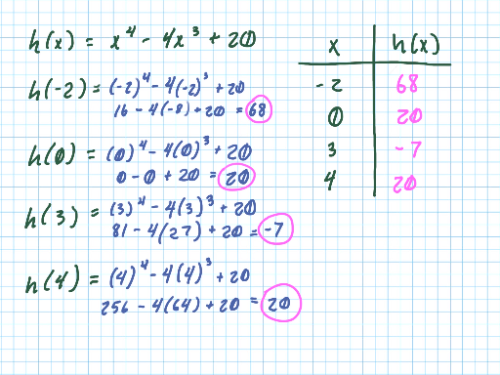 h(x) = x⁴ - 4x³ + 20
h(-2) = (-2)⁴ - 4(-2)³ + 20
16 - 4(-8) + 20 = 68
h(0) = (0)⁴ - 4(0)³ + 20
0 - 0 + 20 = 20
h(3) = (3)⁴ - 4(3)³ + 20
81 - 4(27) + 20 = -7
h(4) = (4)⁴ - 4(4)³ + 20
256 - 4(64) + 20 = 20
x h(x)
-2 68
0 20
3 -7
4 20